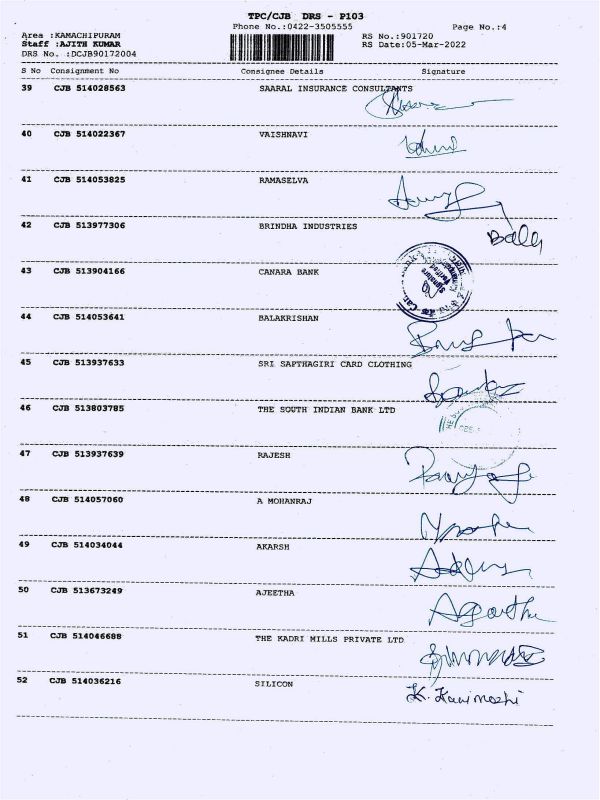 TPC/CJB DRS - P103
Phone No.:0422-3505555 Page No.:4
Area :KAMACHIPURAM RS No.:901720
Staff :AJITH KUMAR RS Date:05-Mar-2022
DRS No. :DCJB90172004
S No Consignment No Consignee Details Signature
39 CJB 514028563 SAARAL INSURANCE CONSULTANTS
40 CJB 514022367 VAISHNAVI
41 CJB 514053825 RAMASELVA
42 CJB 513977306 BRINDHA INDUSTRIES
43 CJB 513904166 CANARA BANK
44 CJB 514053641 BALAKRISHAN
45 CJB 513937633 SRI SAPTHAGIRI CARD CLOTHING
46 CJB 513803785 THE SOUTH INDIAN BANK LTD
47 CJB 513937639 RAJESH
48 CJB 514057060 A MOHANRAJ
49 CJB 514034044 AKARSH
50 CJB 513673249 AJEETHA
51 CJB 514046688 THE KADRI MILLS PRIVATE LTD
52 CJB 514036216 SILICON